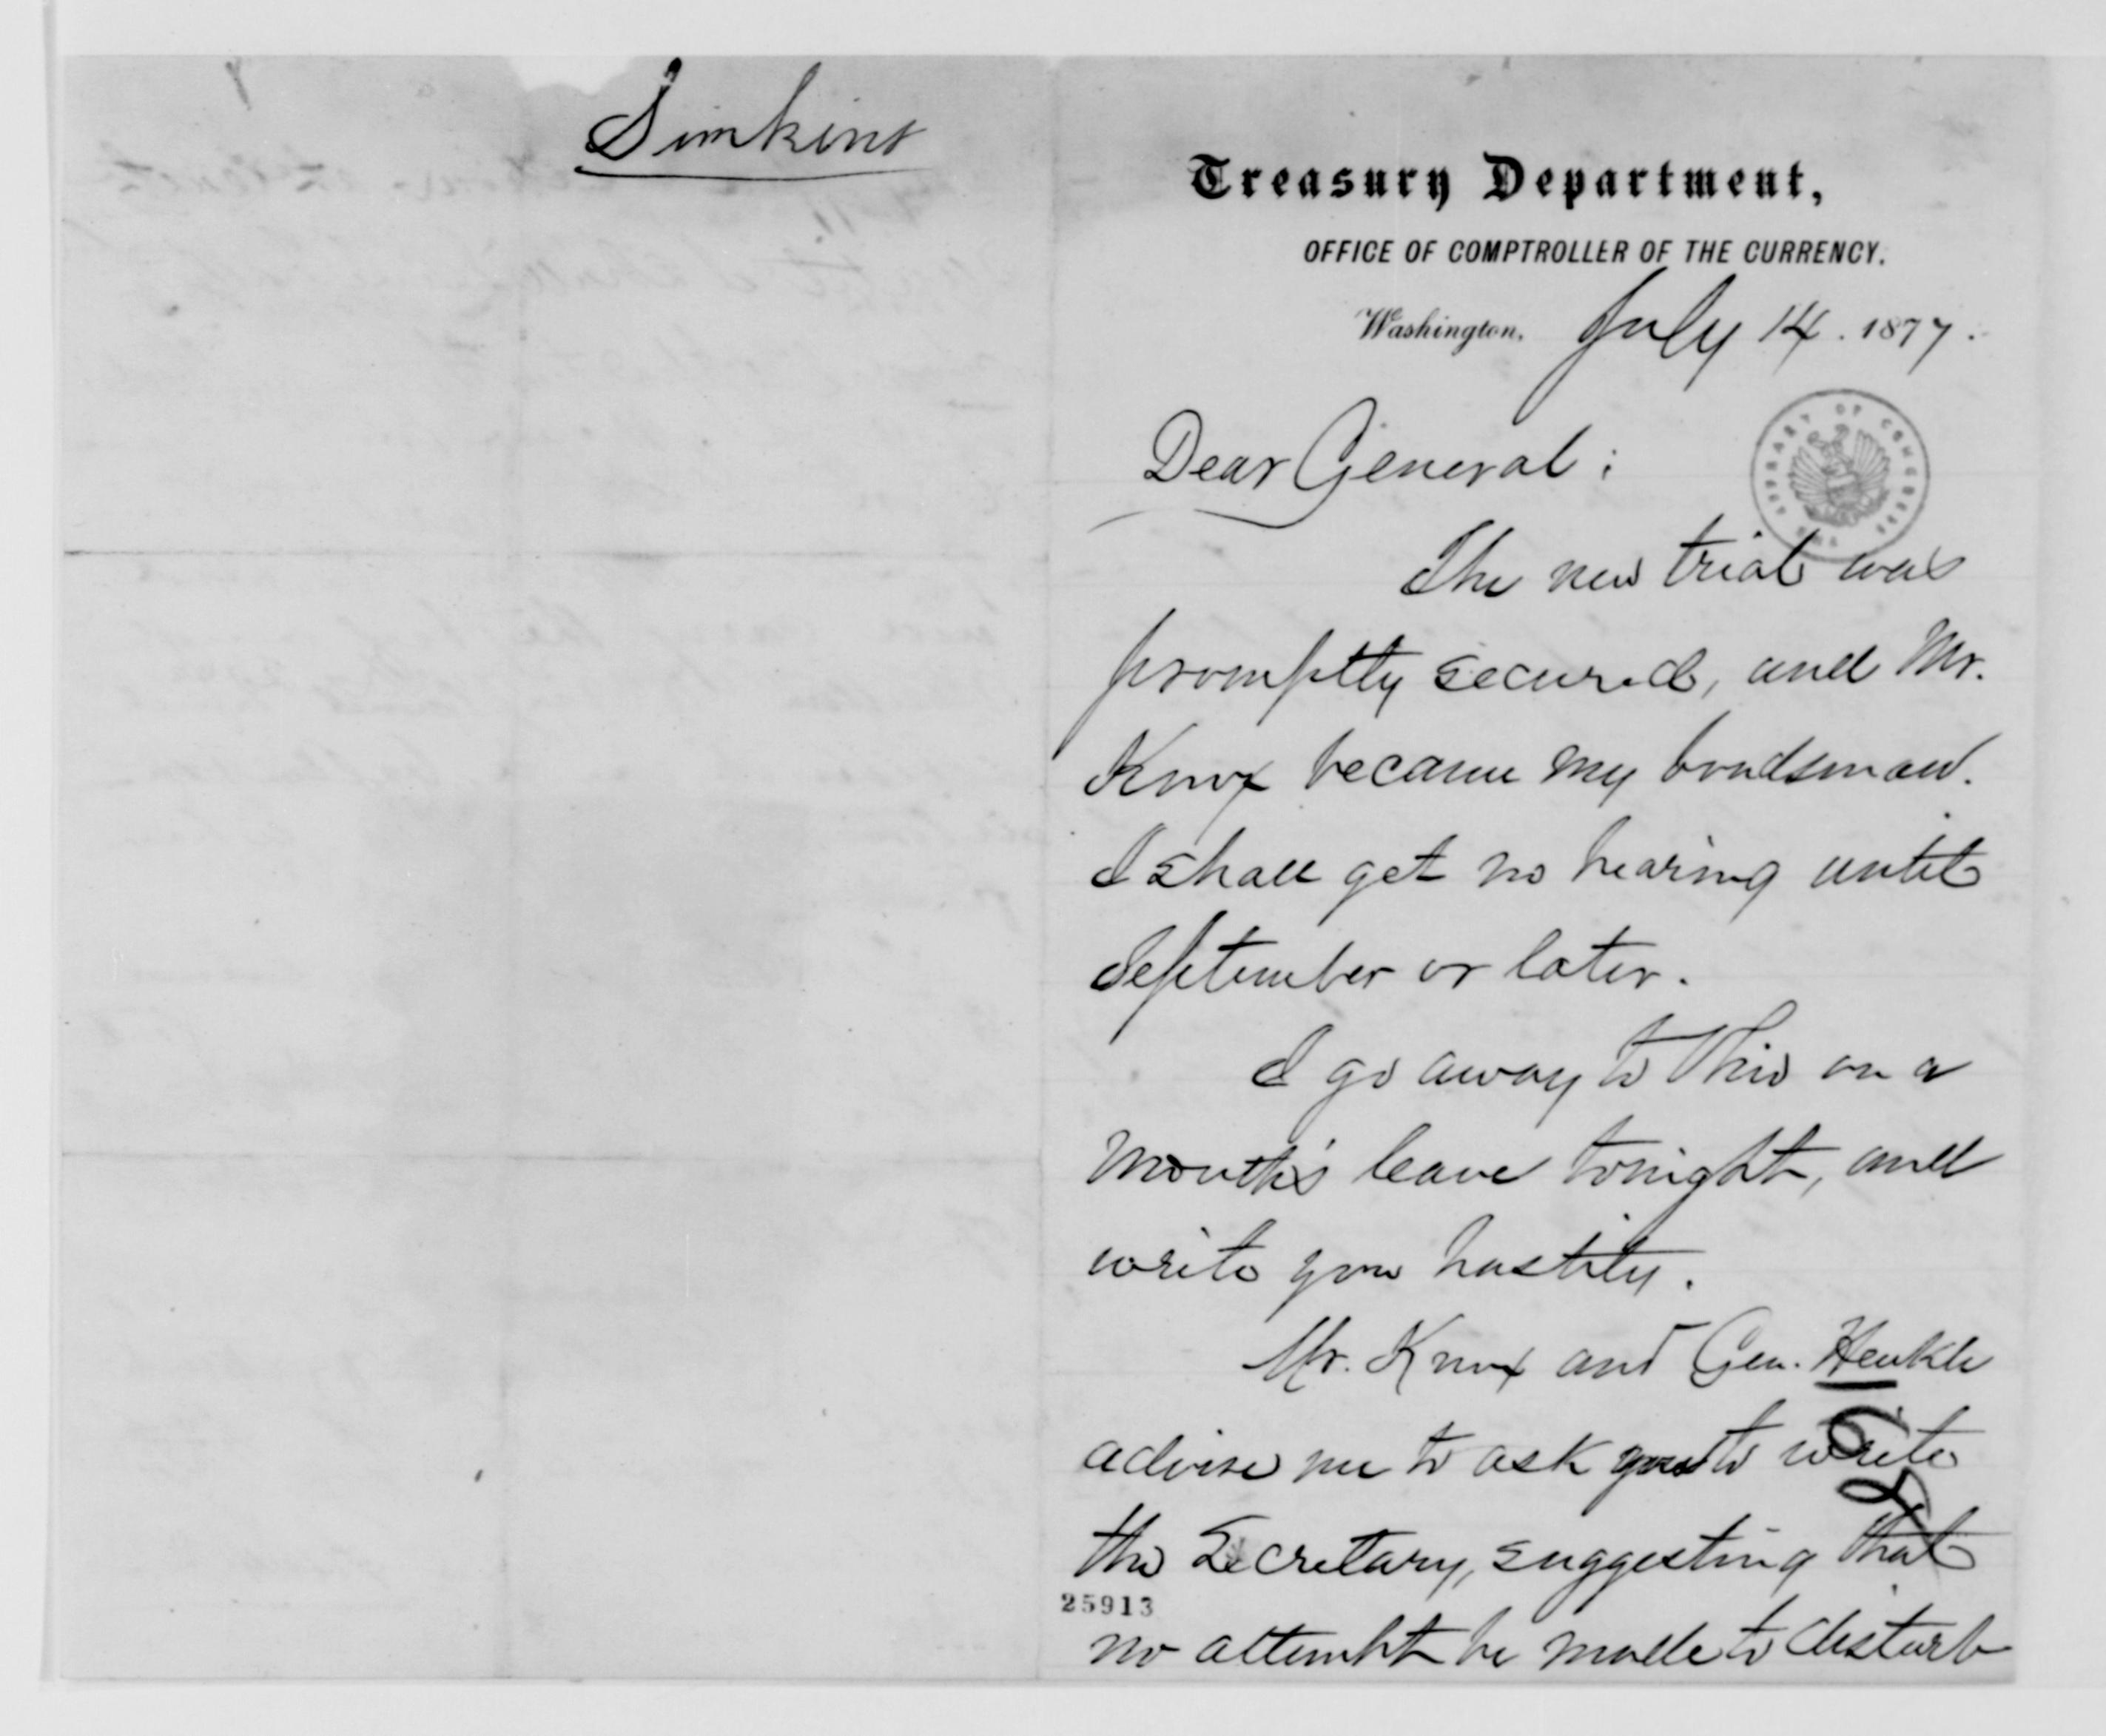 Simkins
Treasury Department,
OFFICE OF COMPTROLLER OF THE CURRENCY.
Washington, July 14. 1877.
LIBRARY OF CONGRESS
Dear General:
The new trial was
promptly secured, and Mr.
Knox became my bondsman.
I shall get no hearing until
September or later.
I go away to Ohio on a
month's leave tonight, and
write you hastily.
Mr. Knox and Gen. Henkle
advise me to ask you to write
the Secretary, suggesting that
25913
no attempt be made to disturb